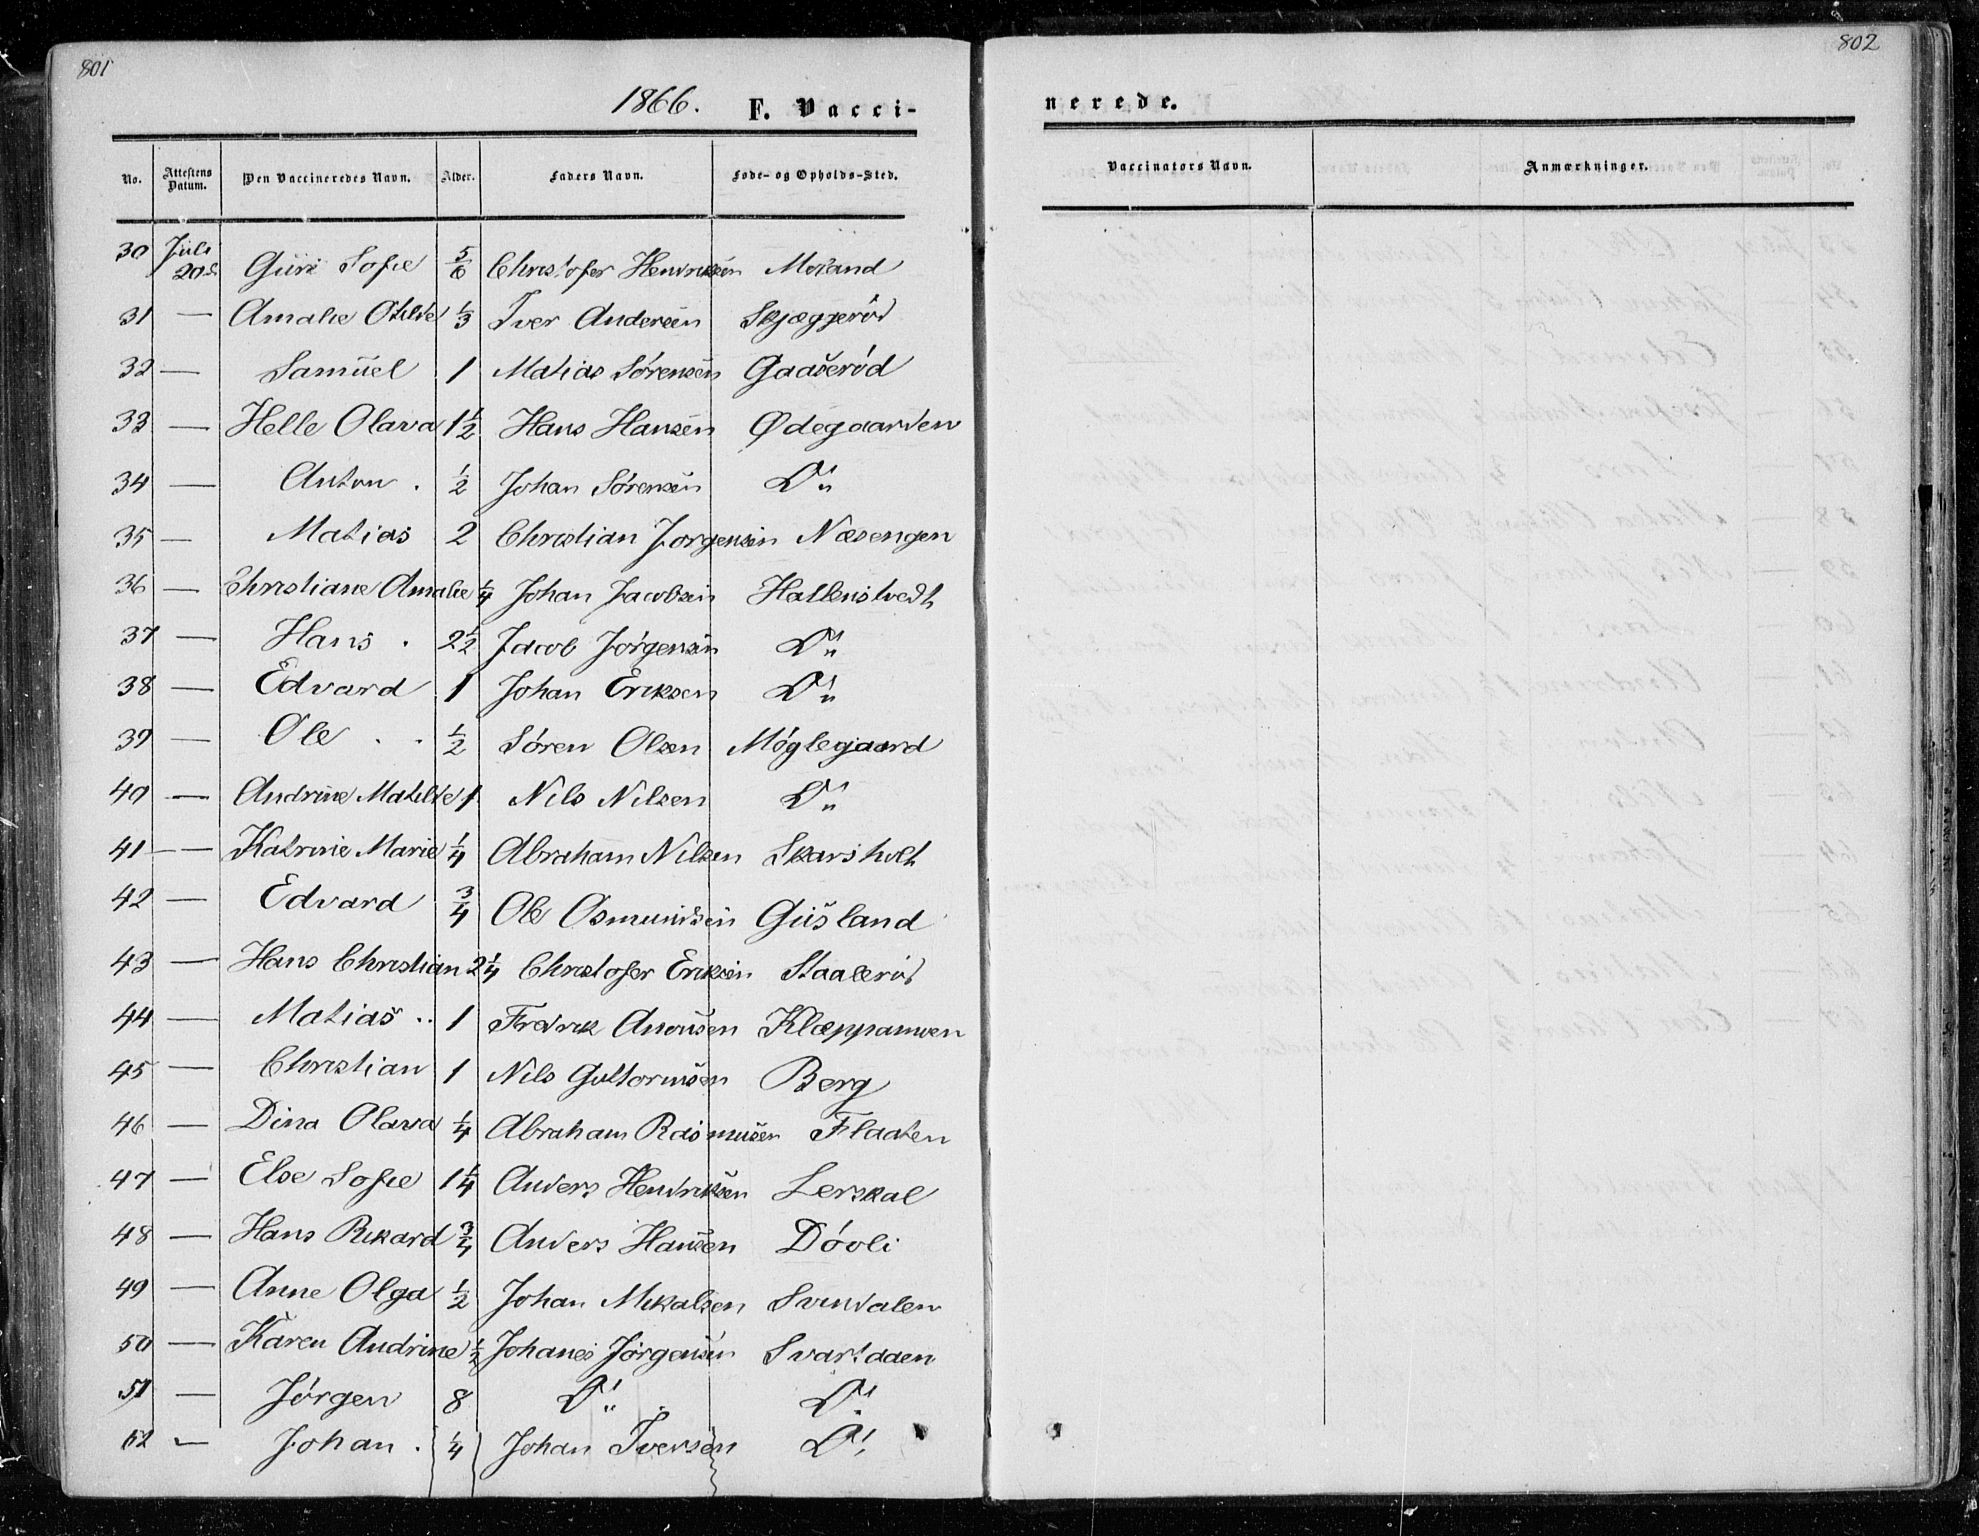 801
802
1866. F. Vacci-
nerede.
No. Attestens Datum. Den Vaccineredes Navn. Alder. Faders Navn. Føde- og Opholds-Sted. Vaccinators Navn. Anmærkninger.
30 Juli 20de Guri Sofie 5/6 Christofer Henriksen Moland
31 — Amalie Otilde 1/3 Iver Andersen Skjæggerød
32 — Samuel 1 Matias Sørensen Gaaserød
33 — Helle Olava 1 1/2 Hans Hansen Ødegaarden
34 — Anton . 1/2 Johan Sørensen Do
35 — Matias 2 Christian Jørgensen Næsengen
36 — Christiane Amalie 1/4 Johan Jacobsen Hallenstvedt
37 — Hans . 2 1/2 Jacob Jørgensen Do
38 — Edvard 1 Johan Eriksen Do
39 — Ole . . 1/2 Søren Olsen Møglegaard
40 — Andrine Matilde 1 Nils Nilsen Do
41 — Katrine Marie 1/4 Abraham Nilsen Skarsholt
42 — Edvard 3/4 Ole Osmundsen Gusland
43 — Hans Christian 2 1/4 Christofer Eriksen Staalerød
44 — Matias .. 1 Fredrik Klæppamoen
45 — Christian 1 Nils Guttormsen Berg
46 — Dina Olava 1/4 Abraham Rasmusen Flaaten
47 — Else Sofie 1 1/4 Anders Henriksen Lerskal
48 — Hans Rikard 3/4 Anders Hansen Døvli
49 — Anne Olga 1/2 Johan Mikalsen Svindalen
50 — Karen Andrine 1/2 Johanes Jørgensen Svartaaen
51 — Jørgen 8 Do Do
52 — Johan . 1/4 Johan Iversen Do